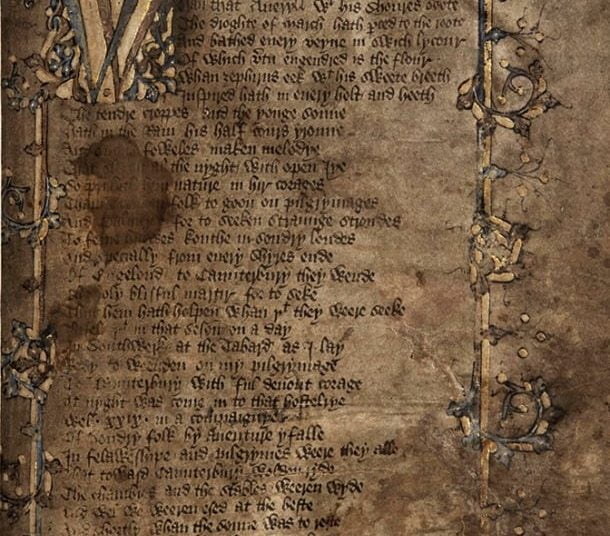 that Aueryll wt his shoures soote
The droghte of March hath perced to the roote
And bathed euery veyne in swich lycour
Of which vertu engendred is the flour
Whan zephirus eek wt his sweete breeth
Inspired hath in euery holt and heeth
The tendre croppes and the yonge sonne
Hath in the Ram his half cours yronne
foweles maken melodye
al the nyght with open Iye
So nature in hir corages
folk to goon on pilgrymages
And for to seeken straunge strondes
To ferne halwes kouthe in sondry londes
And specially from euery shyres ende
Of Engelond to Caunterbury they wende
The holy blisful martir for to seke
That hem hath holpen whan þt they weere seeke
þt in that seson on a day
In Southwerk at the Tabard as I lay
Redy to weenden on my pilgrymage
To Caunterbury with ful deuout corage
At nyght was come in to that hostelrye
Wel .xxix. in a compaignye
Of sondry folk by auenture yfalle
In felaweshipe and pilgrymes weere they alle
That toward Caunterbury wolden ryde
The chambres and the stables weeren wyde
And wel we weeren esed at the beste
And shortly whan the sonne was to reste